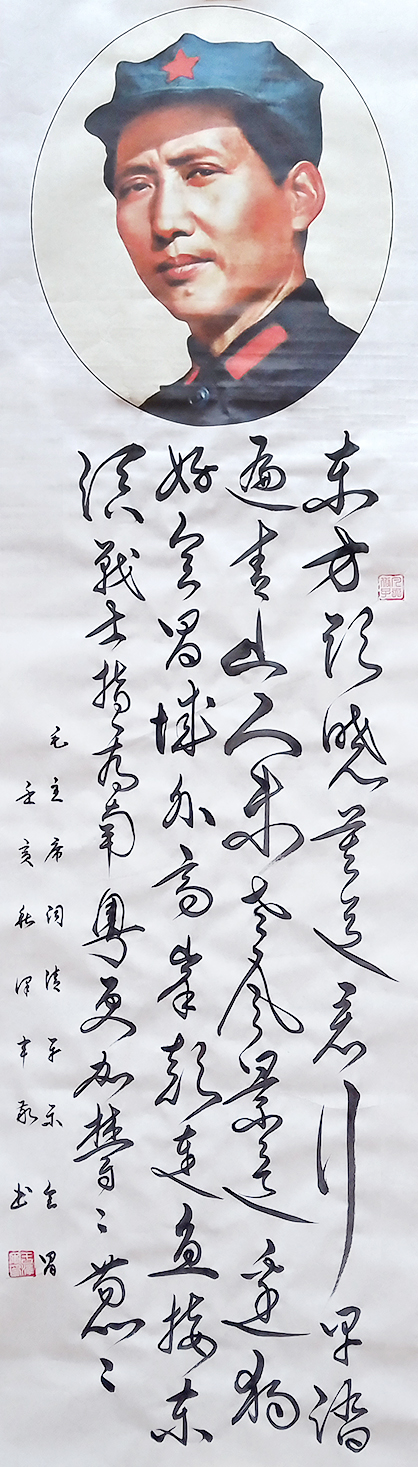 东方欲晓莫道君行早踏
遍青山人未老风景这边独
好会昌城外高峰颠连直接东
溟战士指看南粤更加郁〻葱〻
毛主席词清平乐会昌
亥秋泽敬书